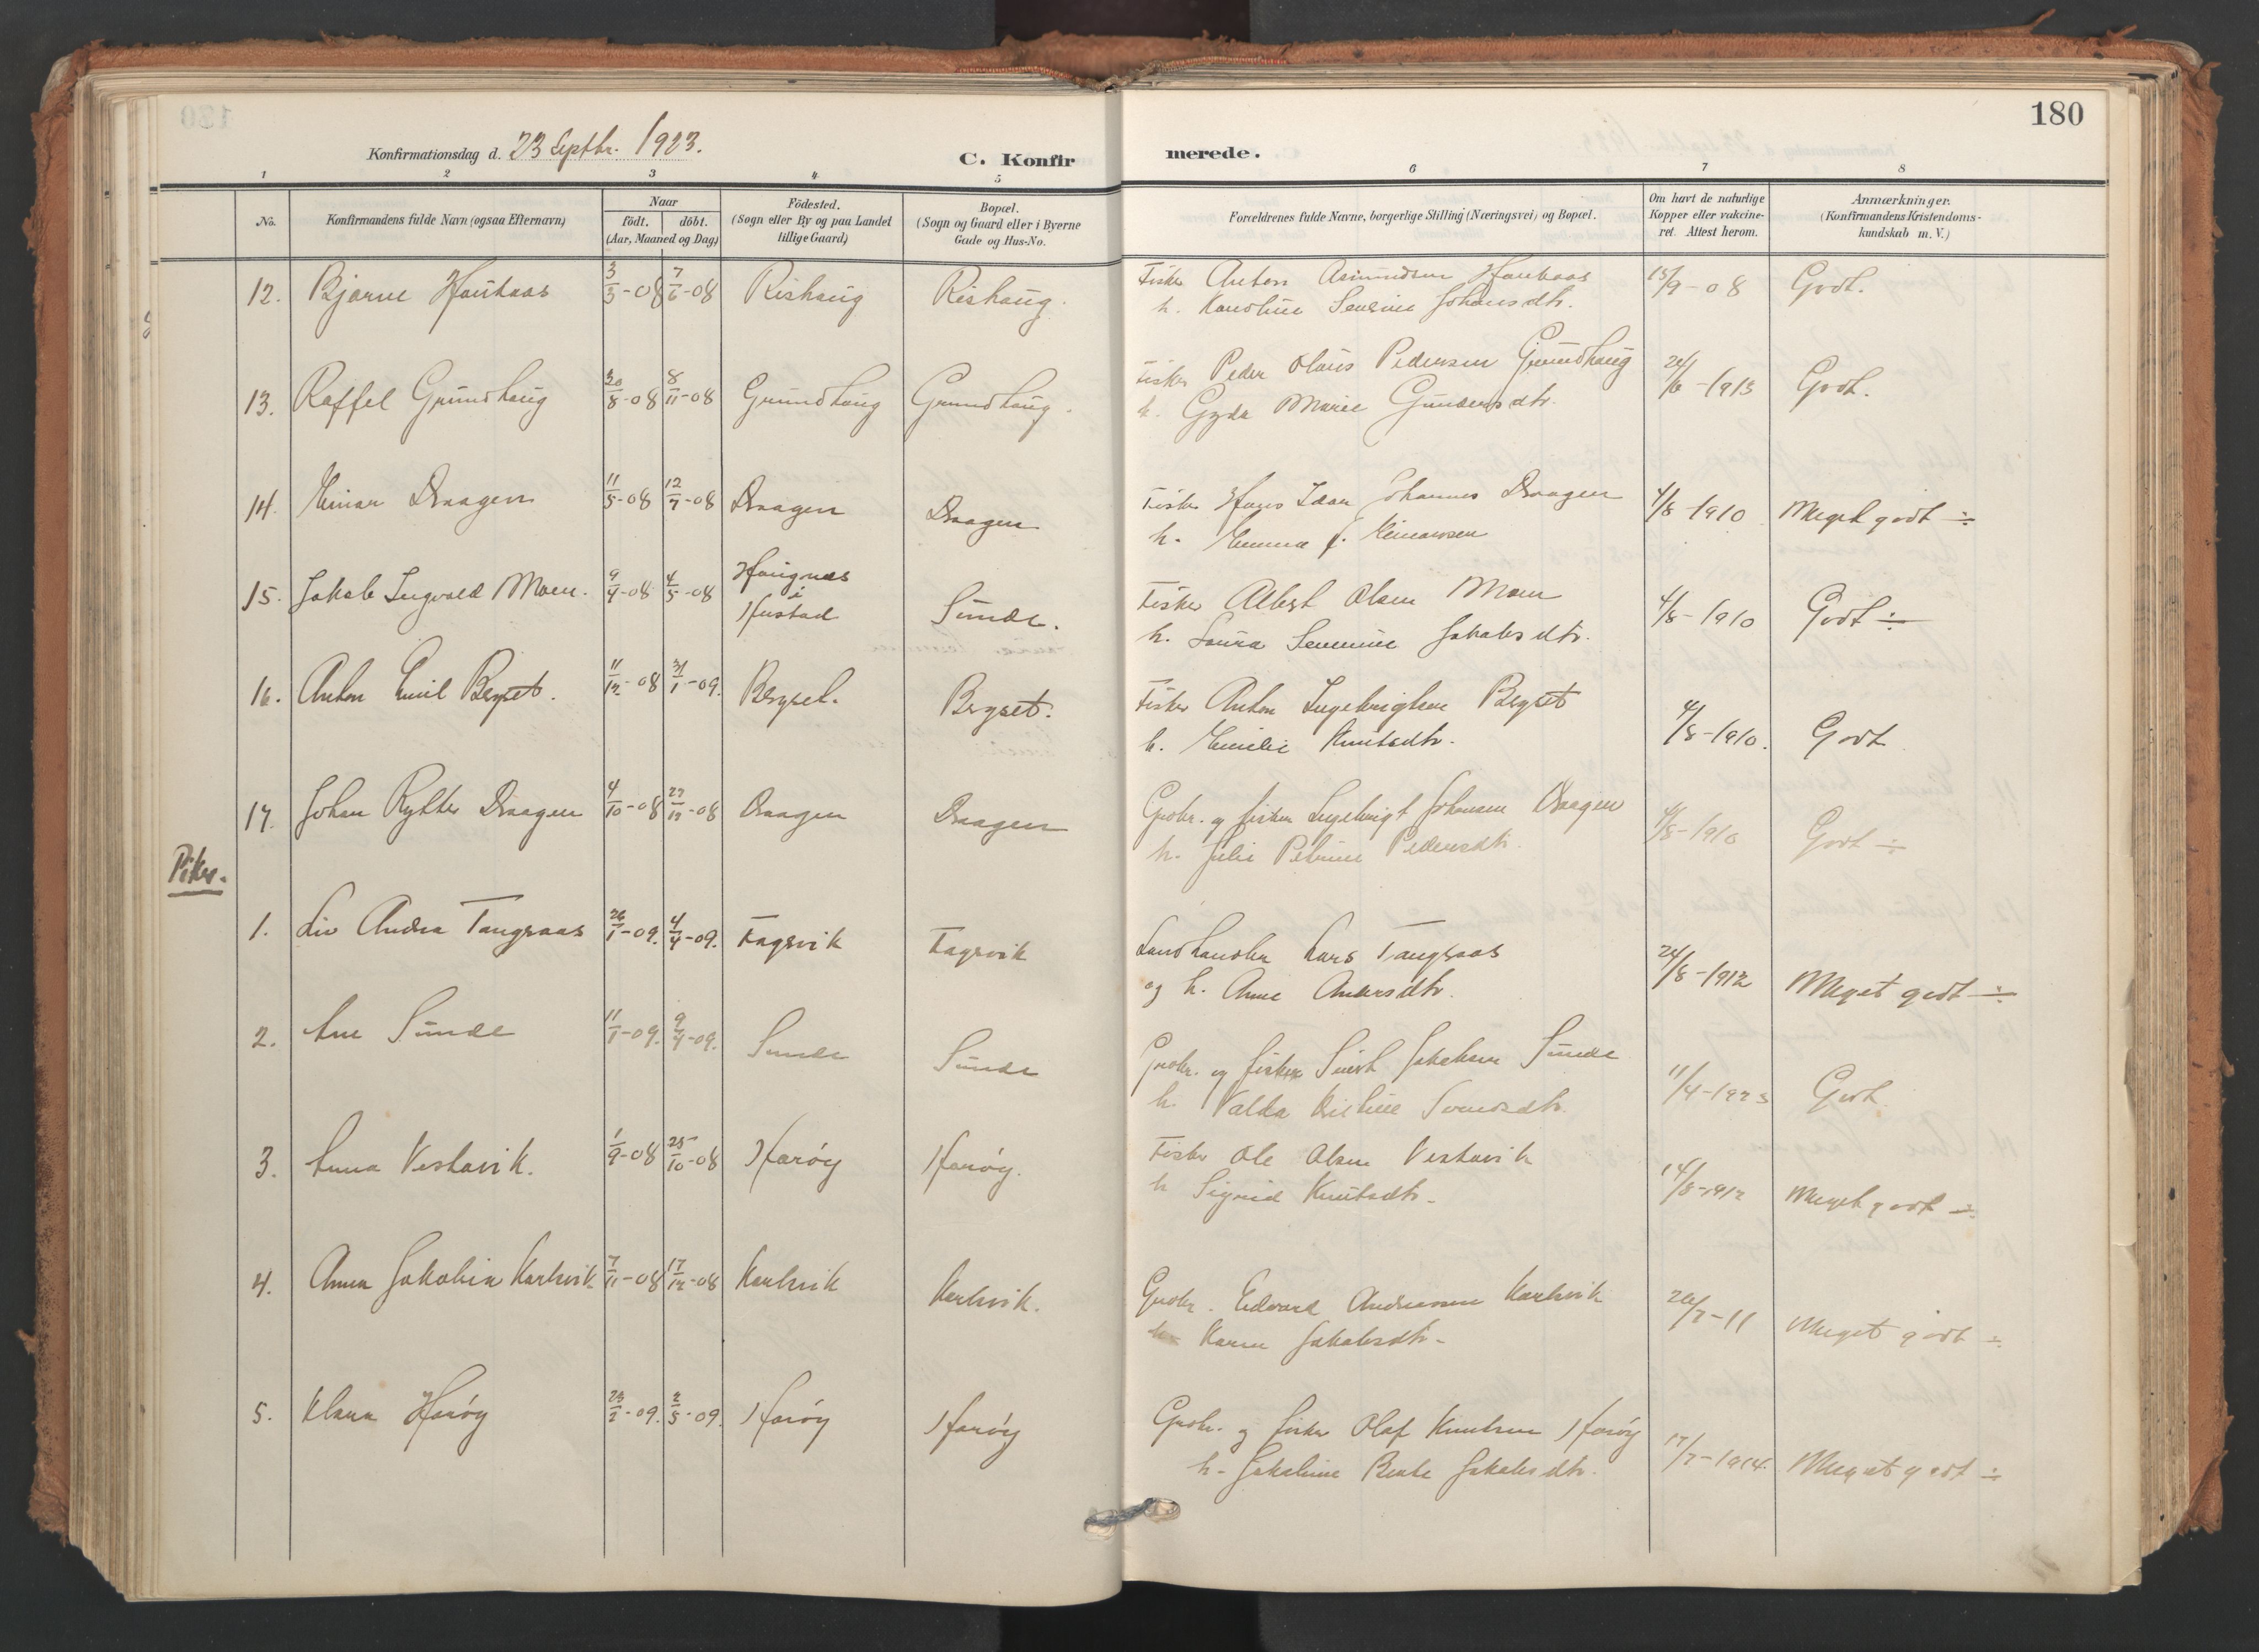 180
Konfirmationsdag d. 23 Septbr. 1923.
C. Konfirmerede.
1 2 3 4 5 6 7 8
No.
Konfirmandens fulde Navn (ogsaa Efternavn)
Naar
födt. döbt.
(Aar, Maaned og Dag)
Födested.
(Sogn eller By og paa Landet
tillige Gaard)
Bopæl.
(Sogn og Gaard eller i Byerne
Gade og Hus-No.
Forældrenes fulde Navne, borgerlige Stilling (Næringsvei) og Bopæl.
Om havt de naturlige
Kopper eller vakcine-
ret. Attest herom.
Anmærkninger.
(Konfirmandens Kristendoms-
kundskab m. V.)
12. Bjarne Haukaas 3/3-08 7/6-08 Rishaug Rishaug. Fisker Anton Asmundsen Haukaas 15/9-08 Godt.
h. Karoline Severine Johansdtr.
13. Raffel Grundhaug 30/8-08 8/11-08 Grundhaug Grundhaug. Fisker Peder Olaus Pedersen Grundhaug /6-1913 Godt.
h. Gyda Marie Gundersdtr.
14. Einar Draagen 11/5-08 12/7-08 Draagen Draagen Fisker Hans Johannes Draagen 4/8-1910 Meget godt ÷
h. Emma f. Einarsen
15. Jakob Ingvald Moen. 9/4-08 4/5-08 Haugnes
i
Hustad Sunde. Fisker Albert Olsen Moen 4/8-1910 Godt ÷
h. Laura Jakobsdtr.
16. Anton Emil Bergset. 11/12-08 31/1-09. Bergset. Bergset. Fisker Anton Ingebrigtsen Bergset 4/8-1910. Godt
h. Emilie Knutsdtr.
17. Johan Rytter Draagen 4/10-08 27/12-08 Draagen Draagen Gbrkr. og fisker Ingebrigt Johansen Draagen 4/8-1910 Godt ÷
h. Julie Petrine Pedersdtr.
Piker.
1. Liv Andrea Tangeraas 26/1-09. 4/4-09. Fagervik Fagervik Landhandler Lars Tangeraas 24/8-1912 Meget godt ÷
og h. Anne Andersdtr.
2. Ane Sunde 11/1-09. 9/4-09. Sunde Sunde Gbrkr. og fisker Sivert Jakobsen Sunde 11/4-1923 Godt
h. Valda Kristine
3. Anna Vestavik. 1/9-08 25/10-08 Harøy Harøy. Fisker Ole Olsen Vestavik 14/8-1912 Meget godt ÷
h Sigrid Knutsdtr.
4. Anna Jakobia Karlsvik 7/11-08 17/12-08 Karlsvik Karlsvik. Gbrkr. Edvard Andreassen Karlsvik 26/7-11 Meget godt ÷
h Karen Jakobsdtr.
5. Klara Harøy 23/2-09. 2/5-09. Harøy Harøy Gbrkr. og fisker Olaf Knutsen Harøy 17/7-1914. Meget godt ÷
h. Jakobine Berte Jakobsdtr.